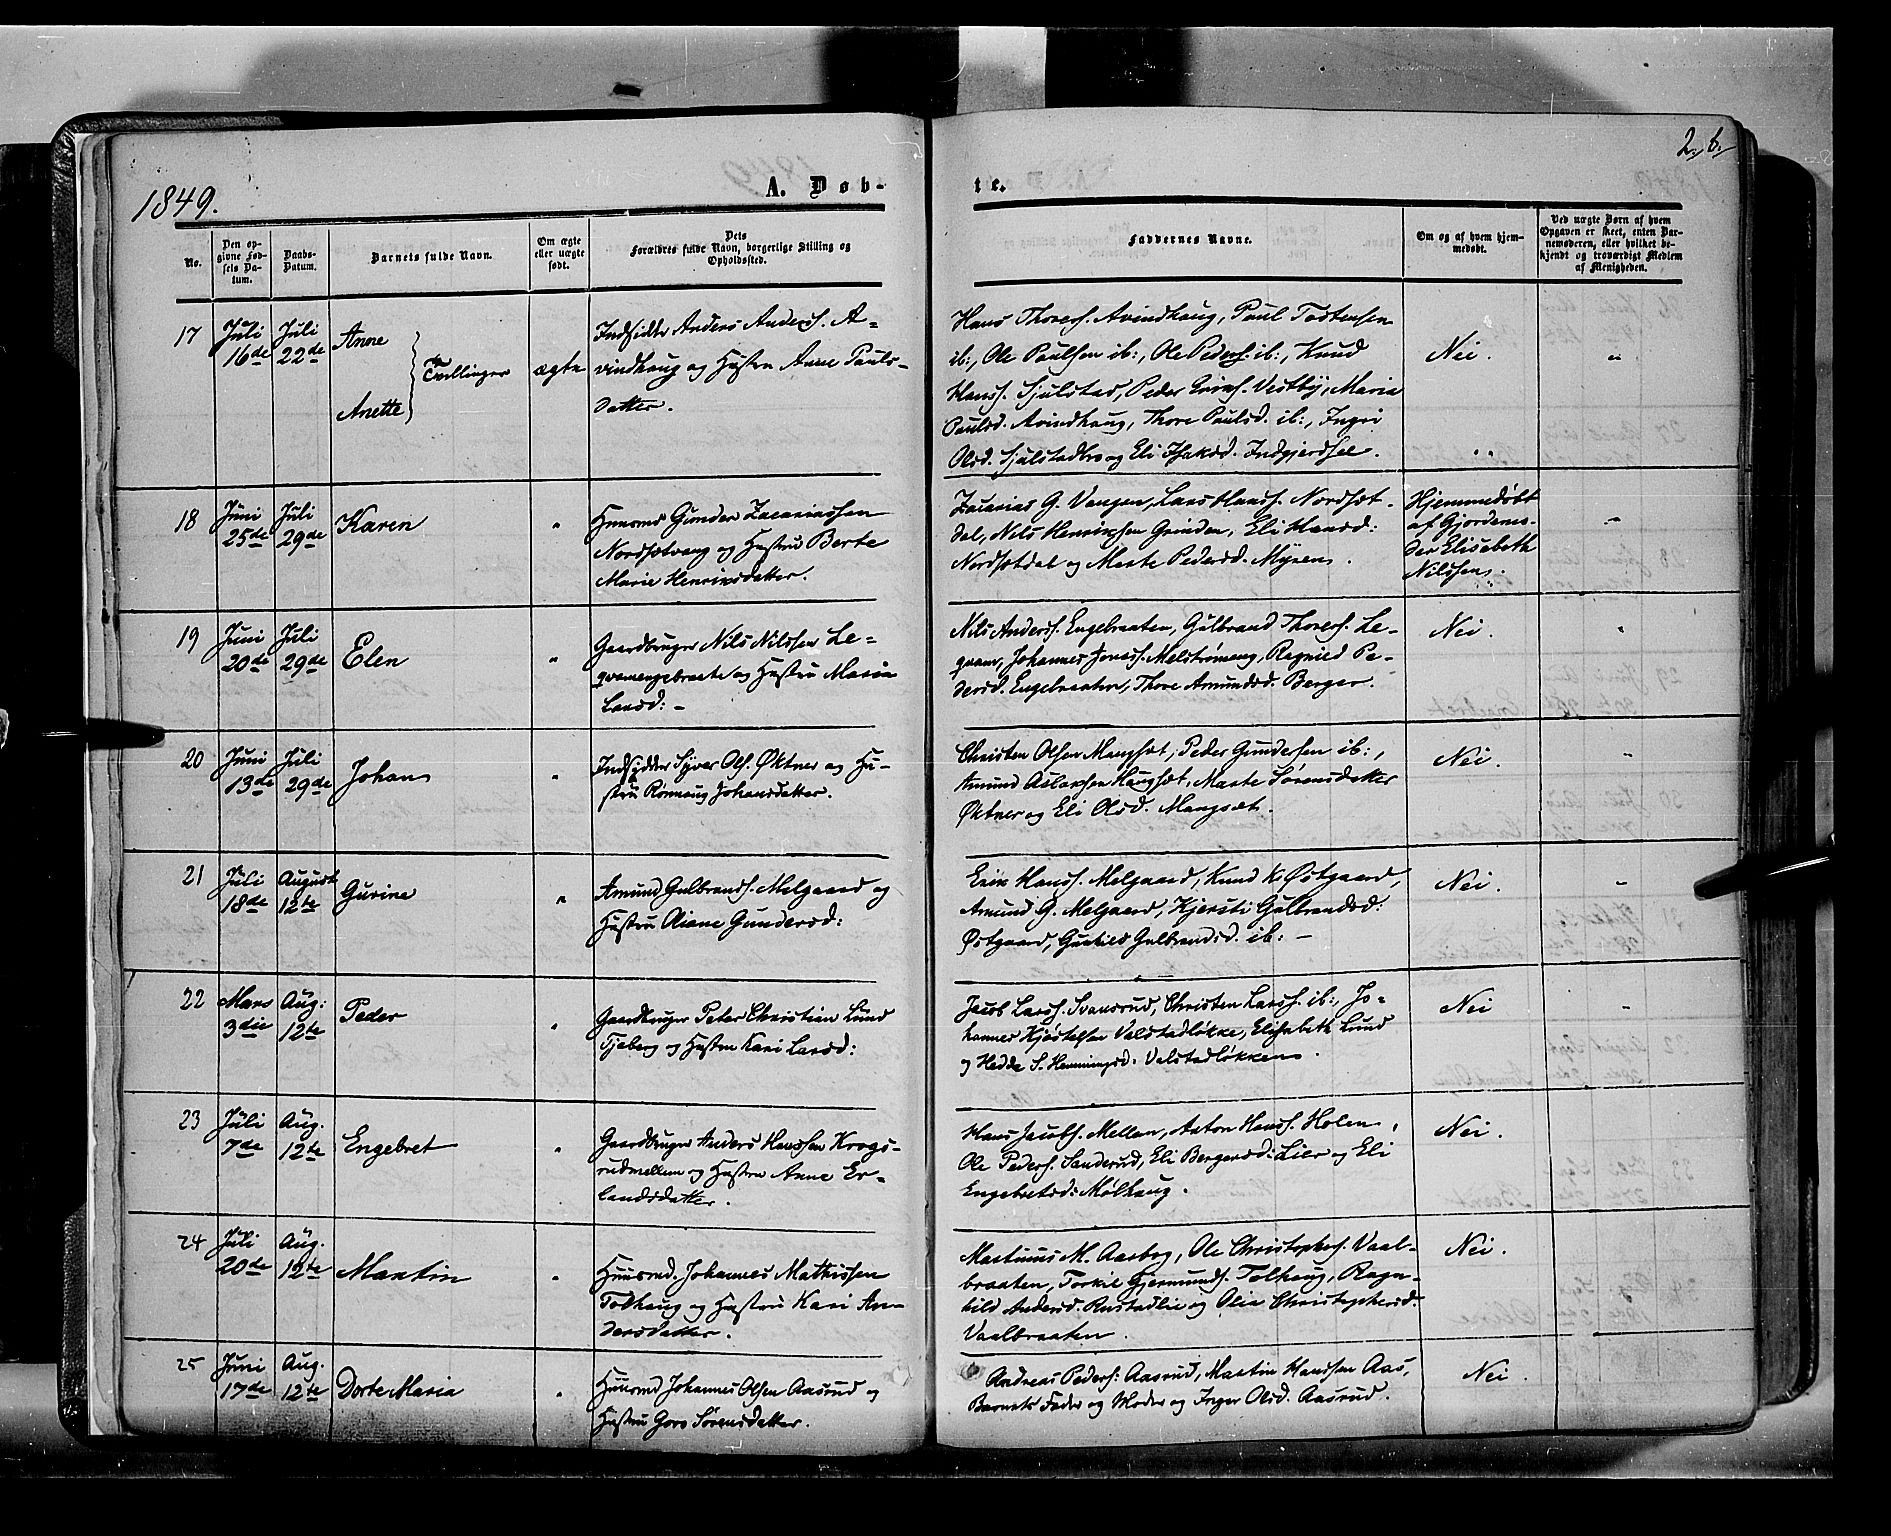 1849.
A. Døb-
te.
2. b.
No.
Den op-
givne Fød-
sels Da-
tum.
Daabs-
Datum.
Barnets fulde Navn.
Om ægte
eller uægte
født.
Dets
Forældres fulde Navn, borgerlige Stilling og
Opholdssted.
Faddernes Navne.
Om og af hvem hjem-
medøbt.
Ved uægte Børn af hvem
Opgaven er skeet, enten Bar-
nemoderen, eller hvilket be-
kjendt og troværdigt Medlem
af Menigheden.
17
Juli
16de
Juli
22de
Anne
Anette
Tvillinger
ægte
Indsidder Anders Anders. A-
vindhaug og Hustru Anne Pauls-
datter.
Hans Thores. Avindhaug, Paul Tostensen
ib:, Ole Paulsen ib:, Ole Peders. ib:, Knud
Hanss. Sjulstad, Peder Vestby, Maria
Paulsd. Avindhaug, Thore Paulsd. ib:, Ingri
Olsd. Sjulstadbro og Eli Isaksd.
Nei.
"
"
18
Juni
25de
Juli
29de
Karen
"
Huusmd Gunder Zacariassen
Nordsætvang og Hustru Berte
Marie Henriksdatter.
Zacarias G. Vangen, Lars Hanss. Nordsæt-
dal, Nils Henriksen Grinden, Eli Hansd:
Nordsætdal og Marte Pedersd. Myren.
Hjemmedøbt
af Gjordemo-
der Elisabeth
Nilssen.
"
19
Juni
20de
Juli
29de
Elen
"
Gaardbruger Nils Nilssen Le-
qvamengebraate og Hustru Maria
Larsd: -
Nils Anderss. Engebraaten, Gulbrand Thores. Le-
qvam, Johannes Jonass. Melstrømeng, Ragnild Pe-
dersd. Engebraaten, Thore Amundsd. Berger.
Nei.
"
20
Juni
13de
Juli
29de
Johan
"
Indsidder Syver Ols. Øktner og Hu-
stru Rønnaug Johansdatter.
Christen Olsen Mangset, Peder Gundersen ib:,
Amund Aslaksen Haugset, Marte Sørensdatter
Øktner og Eli Olsd. Mangset.
Nei.
"
21
Juli
18de
August
12te
Gurine
"
Amund Gulbrands. Melgaard og
Hustru Oliane Gundersd:
Erik Hanss. Melgaard, Knud K. Østgaard,
Amund G. Melgaard, Kjersti Gulbrandsd:
Østgaard, Gunhild Gulbrandsd. ib: -
Nei.
"
22
Mars
3die
Aug:
12te
Peder
"
Gaardbruger Peter Christian Lund
Tjaberg og Hustru Kari Larsd:
Jacob Larss. Svansrud, Christen Larss. ib:, Jo-
hannes Kjøstelsen Valstadløkke, Elisabeth Lund
og Hedde S. Henningsd: Valstadløkken.
Nei
"
23
Juli
7de
Aug.
12te
Engebret
"
Gaardbruger Anders Hanssen Krogs-
rudmellem og Hustru Anne Er-
landsdatter.
Hans Jacobs. Mellem, Anton Hanss. Holen,
Ole Peders. Sanderud, Eli Bergersd: Lier og Eli
Engebretsd: Mølhaug.
Nei.
24
Juli
20de
Aug.
12te
Martin
"
Huusmd. Johannes Mathissen
Tolhaug og Hustru Kari An-
dersdatter.
Martinus M. Aasbog, Ole Christophers. Vaal-
braaten, Torkil Gjermunds. Tolhaug, Ragn-
hild Andersd. Rustadlie og Olia Christophersd.
Vaalbraaten.
Nei.
25
Juni
17de
Aug.
12te
Dorte Maria
"
Huusmd Johannes Olsen Aasrud og
Hustru Goro Sørensdatter.
Andreas Peders: Aasrud, Martin Hanssen Aas,
Barnets Fader og Moder og Inger Olsd. Aasrud.
Nei.